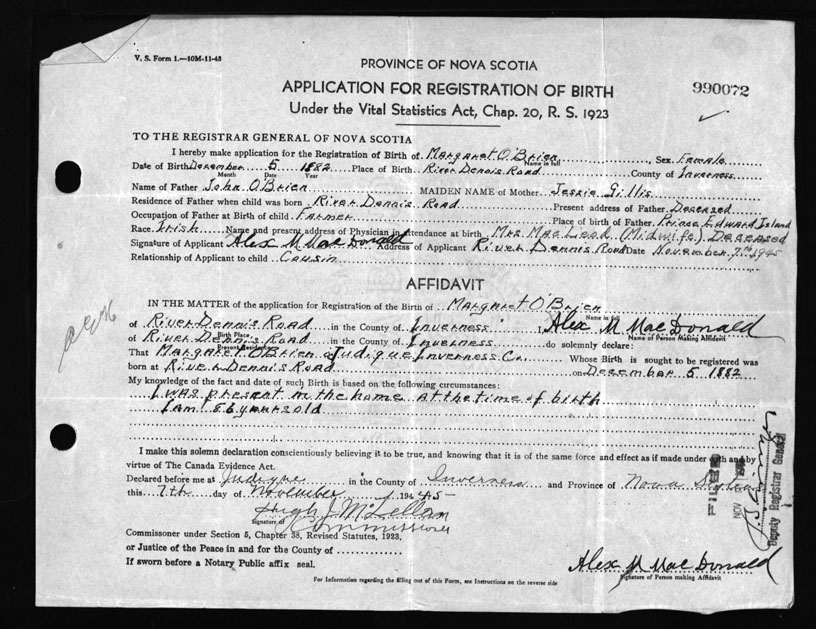 V. S. Form 1.—10M-11-45
PROVINCE OF NOVA SCOTIA
APPLICATION FOR REGISTRATION OF BIRTH
990072
Under the Vital Statistics Act, Chap. 20, R. S. 1923
TO THE REGISTRAR GENERAL OF NOVA SCOTIA
I hereby make application for the Registration of Birth of Margaret O'Brien, Sex Female
Name in full
Date of Birth December 5 1882 Place of Birth River Dennis Road County of Inverness
Month Date Year
Name of Father John O'Brien MAIDEN NAME of Mother Jessie Gillis
Residence of Father when child was born River Dennis Road Present address of Father Deceased
Occupation of Father at Birth of child Farmer Place of Birth of Father Prince Edward Island
Race Irish Name and present address of Physician in attendance at birth Mrs. MacLeod (Midwife) Deceased
Signature of Applicant Alex M MacDonald Address of Applicant River Dennis Road Date November 7th 1945
Relationship of Applicant to child Cousin
AFFIDAVIT
IN THE MATTER of the application for Registration of the Birth of Margaret O'Brien
Name in full
of River Dennis Road in the County of Inverness I, Alex M MacDonald
Birth Place Name of Person Making Affidavit
of River Dennis Road in the County of Inverness do solemnly declare:
Present Residence
That Margaret O'Brien of Judique Inverness Co. Whose Birth is sought to be registered was
born at River Dennis Road on December 5 1882
My knowledge of the fact and date of such Birth is based on the following circumstances:
I was present in the home at the time of birth
I am 86 years old
I make this solemn declaration conscientiously believing it to be true, and knowing that it is of the same force and effect as if made under oath and by
virtue of The Canada Evidence Act.
Declared before me at Judique in the County of Inverness and Province of Nova Scotia
this 7th day of November 194 45
Hugh J. McLellan
Signature of
Commissioner
Commissioner under Section 5, Chapter 38, Revised Statutes, 1923,
or Justice of the Peace in and for the County of
If sworn before a Notary Public affix seal.
Alex M MacDonald
Signature of Person making Affidavit
For Information regarding the filling out of this Form, see Instructions on the reverse side
FILED
NOV
Deputy Registrar General